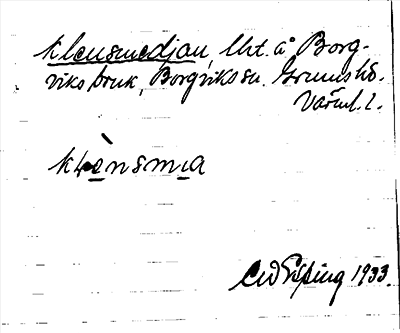 Klensmedjan, lht. å Borg-
viks bruk, Borgviks sn. Grums hd.
Värml. l.
klènsmıa
CW Esping 1933.